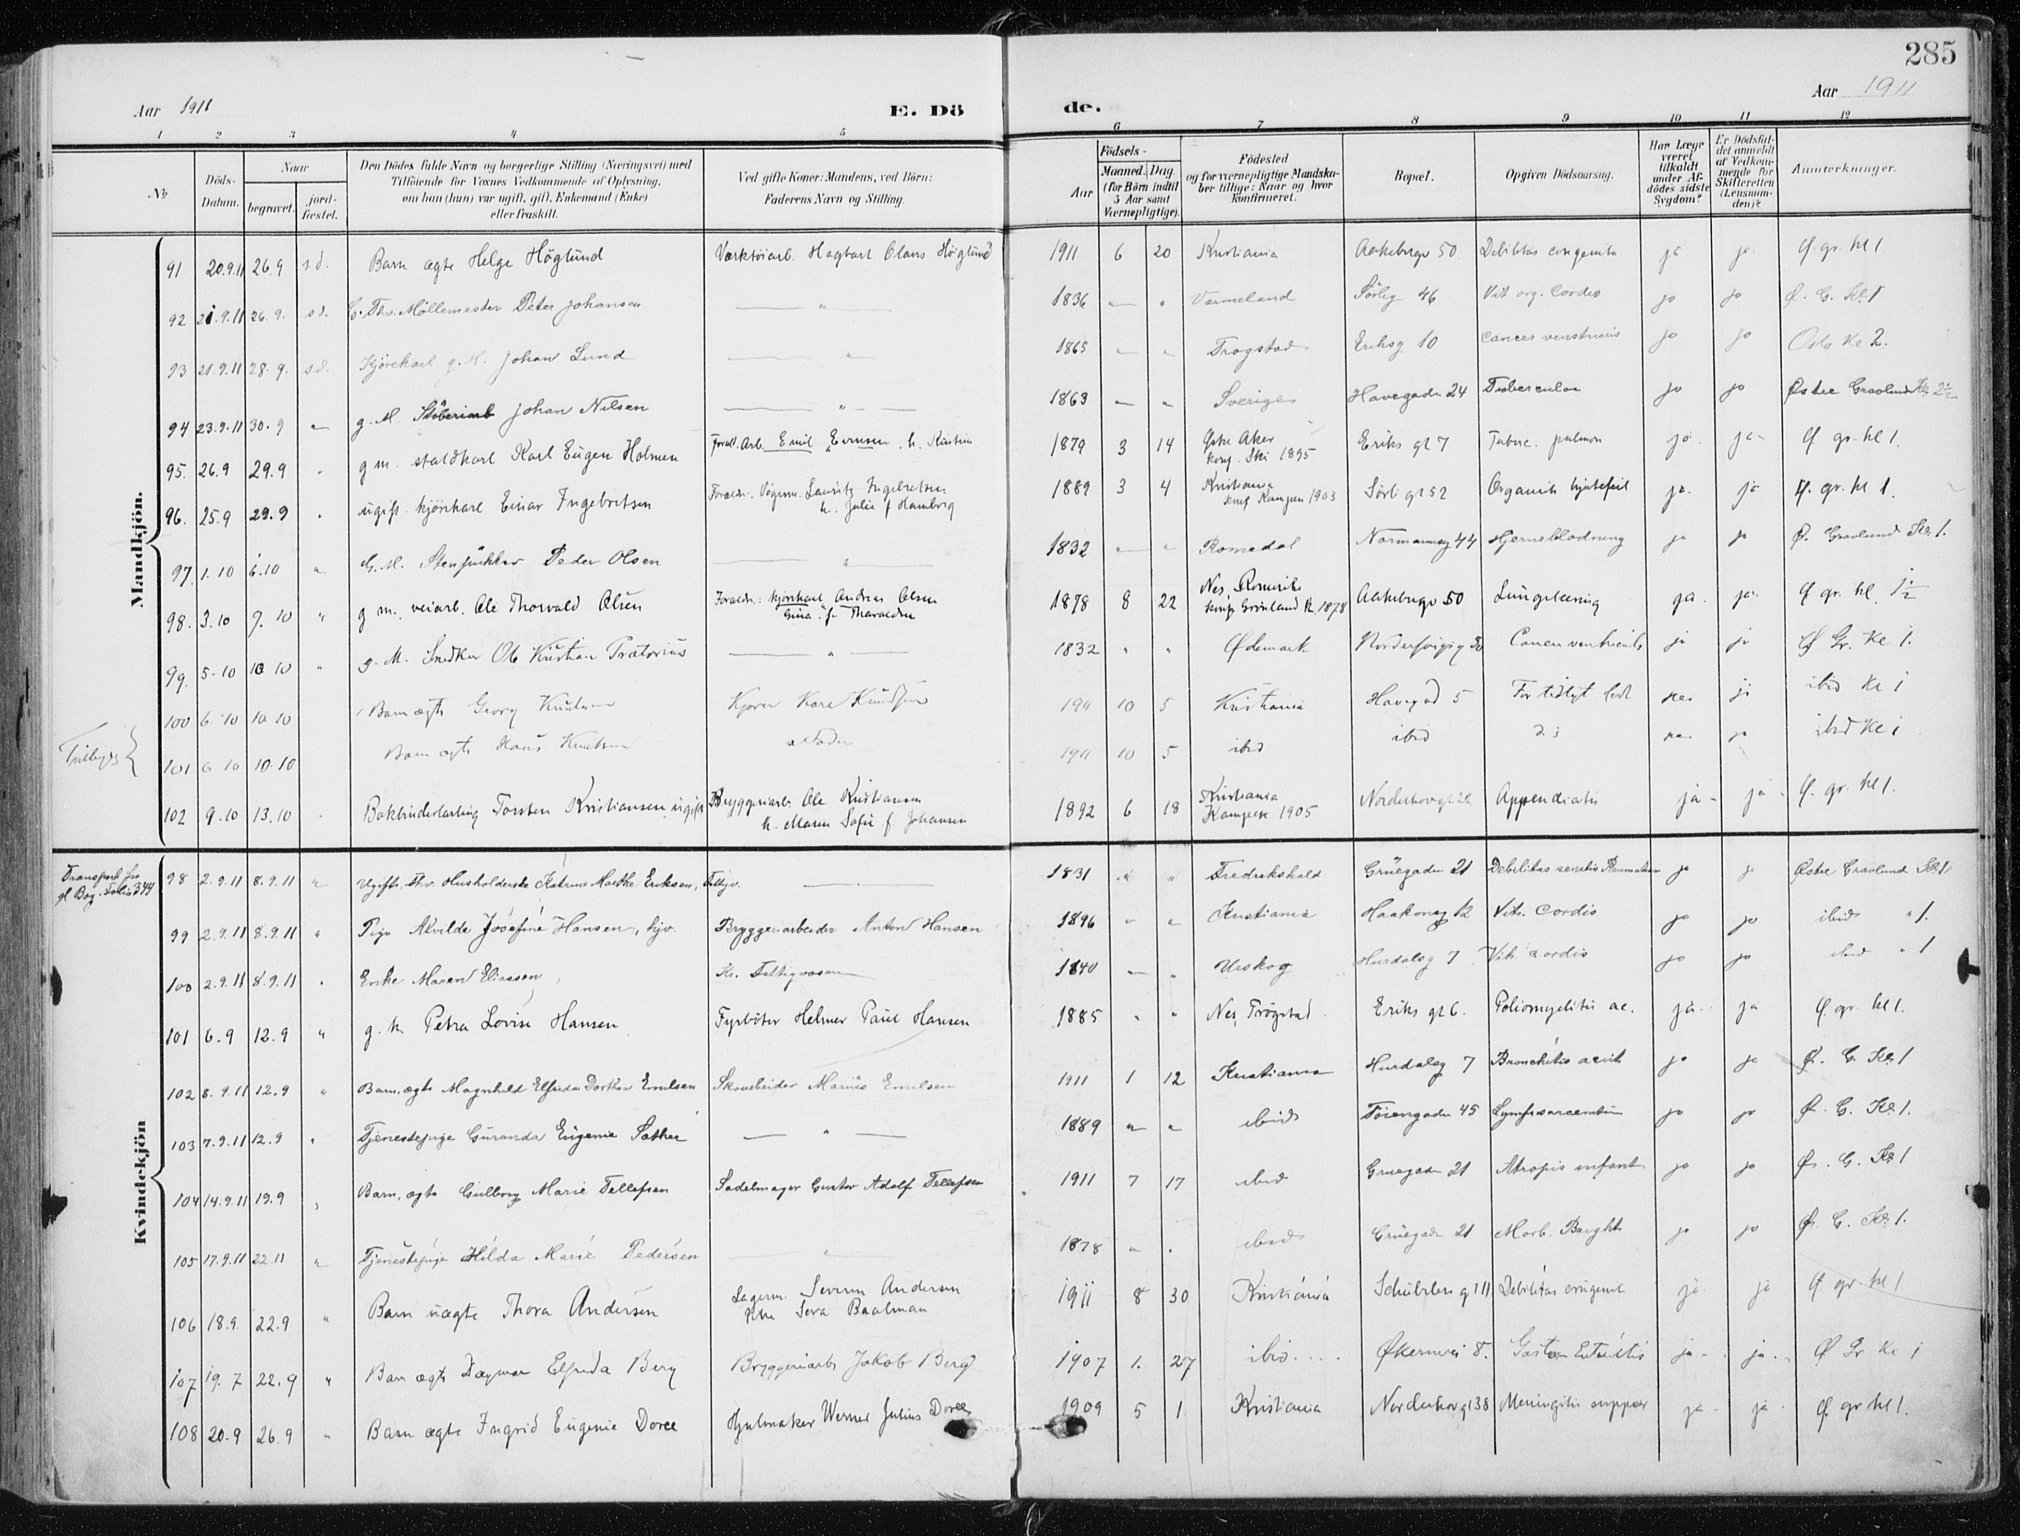 285
Aar 1911 E. Dö de. Aar 1911
1 2 3 4 5 6 7 8 9 10 11 12
No Döds-Datum. Naar begravet. jord-fæstet. Den Dödes fulde Navn og borgerlige Stilling (Næringsvei) med Tilföiende for Voxnes Vedkommende af Oplysning, om han (hun) var ugift, gift, Enkemand (Enke) eller fraskilt. Ved gifte Koner: Mandens, ved Börn: Faderens Navn og Stilling. Födsels- Aar Maaned. Dag. (for Börn indtil 5 Aar samt Værnepligtige). Födested og for værnepligtige Mandskaber tillige: Naar og hvor konfirmeret. Bopæl. Opgiven Dödsaarsag. Har Læge været tilkaldt under Afdödes sidste Sygdom? Er Dödsfaldet anmeldt af Vedkommende for Skifteretten (Lensmanden)? Anmærkninger.
Mandkjön.
91 20.9.11 26.9 s.d. Barn ægte Helge Höglund Værktöiarb. Hagbart Claus Höglund 1911 6 20 Kristiania Aakebergv 50 Debilitas congenita ja ja Ø. gr. kl 1.
92 21.9.11 26.9. s.d. Møllemester Peter Johansen — " — 1836 — " Värmeland Sörlig 46 Vit. org. Cordis ja ja Ø. G. Kl 1
93 21.9.11 28.9. s.d. Kjörekarl g.M. Johan Lund — " — 1865 — " Trøgstad Eriksg 10 Cancer ja ja Oslo Kl 2.
94 23.9.11 30.9 " g. M Johan Nilsen — " — 1863 — " Sverige Havegaden 24 Tuberculose ja ja Østre Gravlund Kl.
95. 26.9 29.9 " g m. staldkarl Karl Eugen Holmen Forald. Arb. Emil h. Kristine 1879 3 14 Østre Aker konf. Ski 1895 Eriks gt 7 Tuberc. pulmon ja ja Ø gr. kl 1.
96. 25.9 29.9 " ugift kjörekarl Einar Ingebretsen Foraldr. Vognm. Lauritz Ingebretsen h. Julie f Hamborg 1889 3 4 Kristiania konf Kampen 1903 Sörli gt 52 Organisk hjertefeil ja. ja Ø. gr. kl 1.
97. 1.10 6.10 " G. M. Peder Olsen — " — 1832 — " Romedal Normannsg 44 Hjerneblodning ja ja Ø. Gravlund Kl 1.
98. 3.10 9.10 " g m. veiarb. Ole Thorvald Olsen Foraldr.: kjörekarl Andreas Olsen Gina f. Tharaldsen 1878 8 22 Nes, Romerike konf. Grönland k. 1878 Aakebergv 50 Lungelæning ja. ja. Ø gr. kl. 1/2
99. 5.10 10.10 " g. M. Snedker Ole Kristian Prætorius — " — 1832 " " Ødemark Cancer ventriculi ja ja Ø Gr. Kl 1.
100 6.10 10.10 Barn ægte Georg Knutsen Kjörer Karl Knudsen 1911 10 5 Kristiania Havegad 5 For tidligt födt nei ja ibid Kl 1
Tvillinger
101 6.10 10.10 Barn ægte Hans Knutsen 1911 10 5 ibid ibid nei ja ibid Kl 1
102 9.10 13.10 " Bokbinderlærling Torsten Kristiansen, ugift Bryggeriarb. Ole Kristiansen h. Maren Sofie f. Johansen 1892 6 18 Kristiania Kampen 1905 Norderhovgt 22 Appendicitis ja ja Ø. gr. kl 1.
Transport fra gl. Bog. Folio 344
Kvindekjön
98 2.9.11 8.9.11 " Ugift. Husholderske Katrine Marthe Eriksen, Fattigv. — 1831 " " Fredrikshald Grüegaden 21 Debilitas senilis ja ja Østre Gravlund Kl 1.
99 2.9.11 8.9.11 " Pige Alvilde Josefine Hansen, hjv. Bryggeriarbeider Anton Hansen 1896 " " Kristiania Haakonsg 12 Vit. Cordis ja ja ibid " 1.
100 2.9.11 8.9.11 " Enke Maren Eliassen, Kr. Fattigvæsen 1840 — " Urskog Hurdalsg 7 Vit. Cordis ja ja ibid " 1
101 6.9 12.9 " g. k Petra Lovise Hansen Fyrböter Helmer Paul Hansen 1885 " " Nes, Trögstad Eriks gt 6. Poliomyelitis ac. ja. ja Ø. gr. kl 1.
102 8.9.11 12.9 " Barn, ægte Magnhild Elfrida Dorthea Emilsen Skoarbeider Marius Emilsen 1911 1 12 Kristiania Hurdalsg 7 Bronchitis acut ja ja Ø. G. Kl. 1
103 7.9.11 12.9 " Tjenestepige Guranda Eugenie Sæther — " — 1889 " " ibid Töiengaden 45 ja ja Ø. G. Kl. 1.
104 14.9.11 19.9 " Barn, ægte Gulborg Marie Tellefsen Sadelmager Gustav Adolf Tellefsen 1911 7 17 ibid Gruegaden 21 Atropis infant ja ja Ø. G. Kl 1
105 17.9.11 22.11 " Tjenestepige Hilda Marie Pedersen — " — 1878 " " ibid Grüegaden 21 Morb. Brightii ja ja Ø. G. Kl 1.
106 18.9. 22.9 " Barn uægte Thora Andersen Lagerm. Severin Andersen Pike Sera Baalman 1911 8 30 Kristiania Schüblers gt 11 Debilitas congenit ja ja Ø gr. kl 1
107 19.7 22.9 " Barn ægte Dagmar Elfrida Berg Bryggeriarb Jakob Berg 1907 1. 27 ibid.... Økernvei 8. Gastro Enteritis ja ja Ø Gr Kl 1
108 20.9 26.9 " Barn ægte Ingrid Eugenie Doree Hjulmaker Werner Julius Doree 1909 5 1 Kristiania Norderhovgt 38 Meningitis ja ja Ø. gr kl 1.